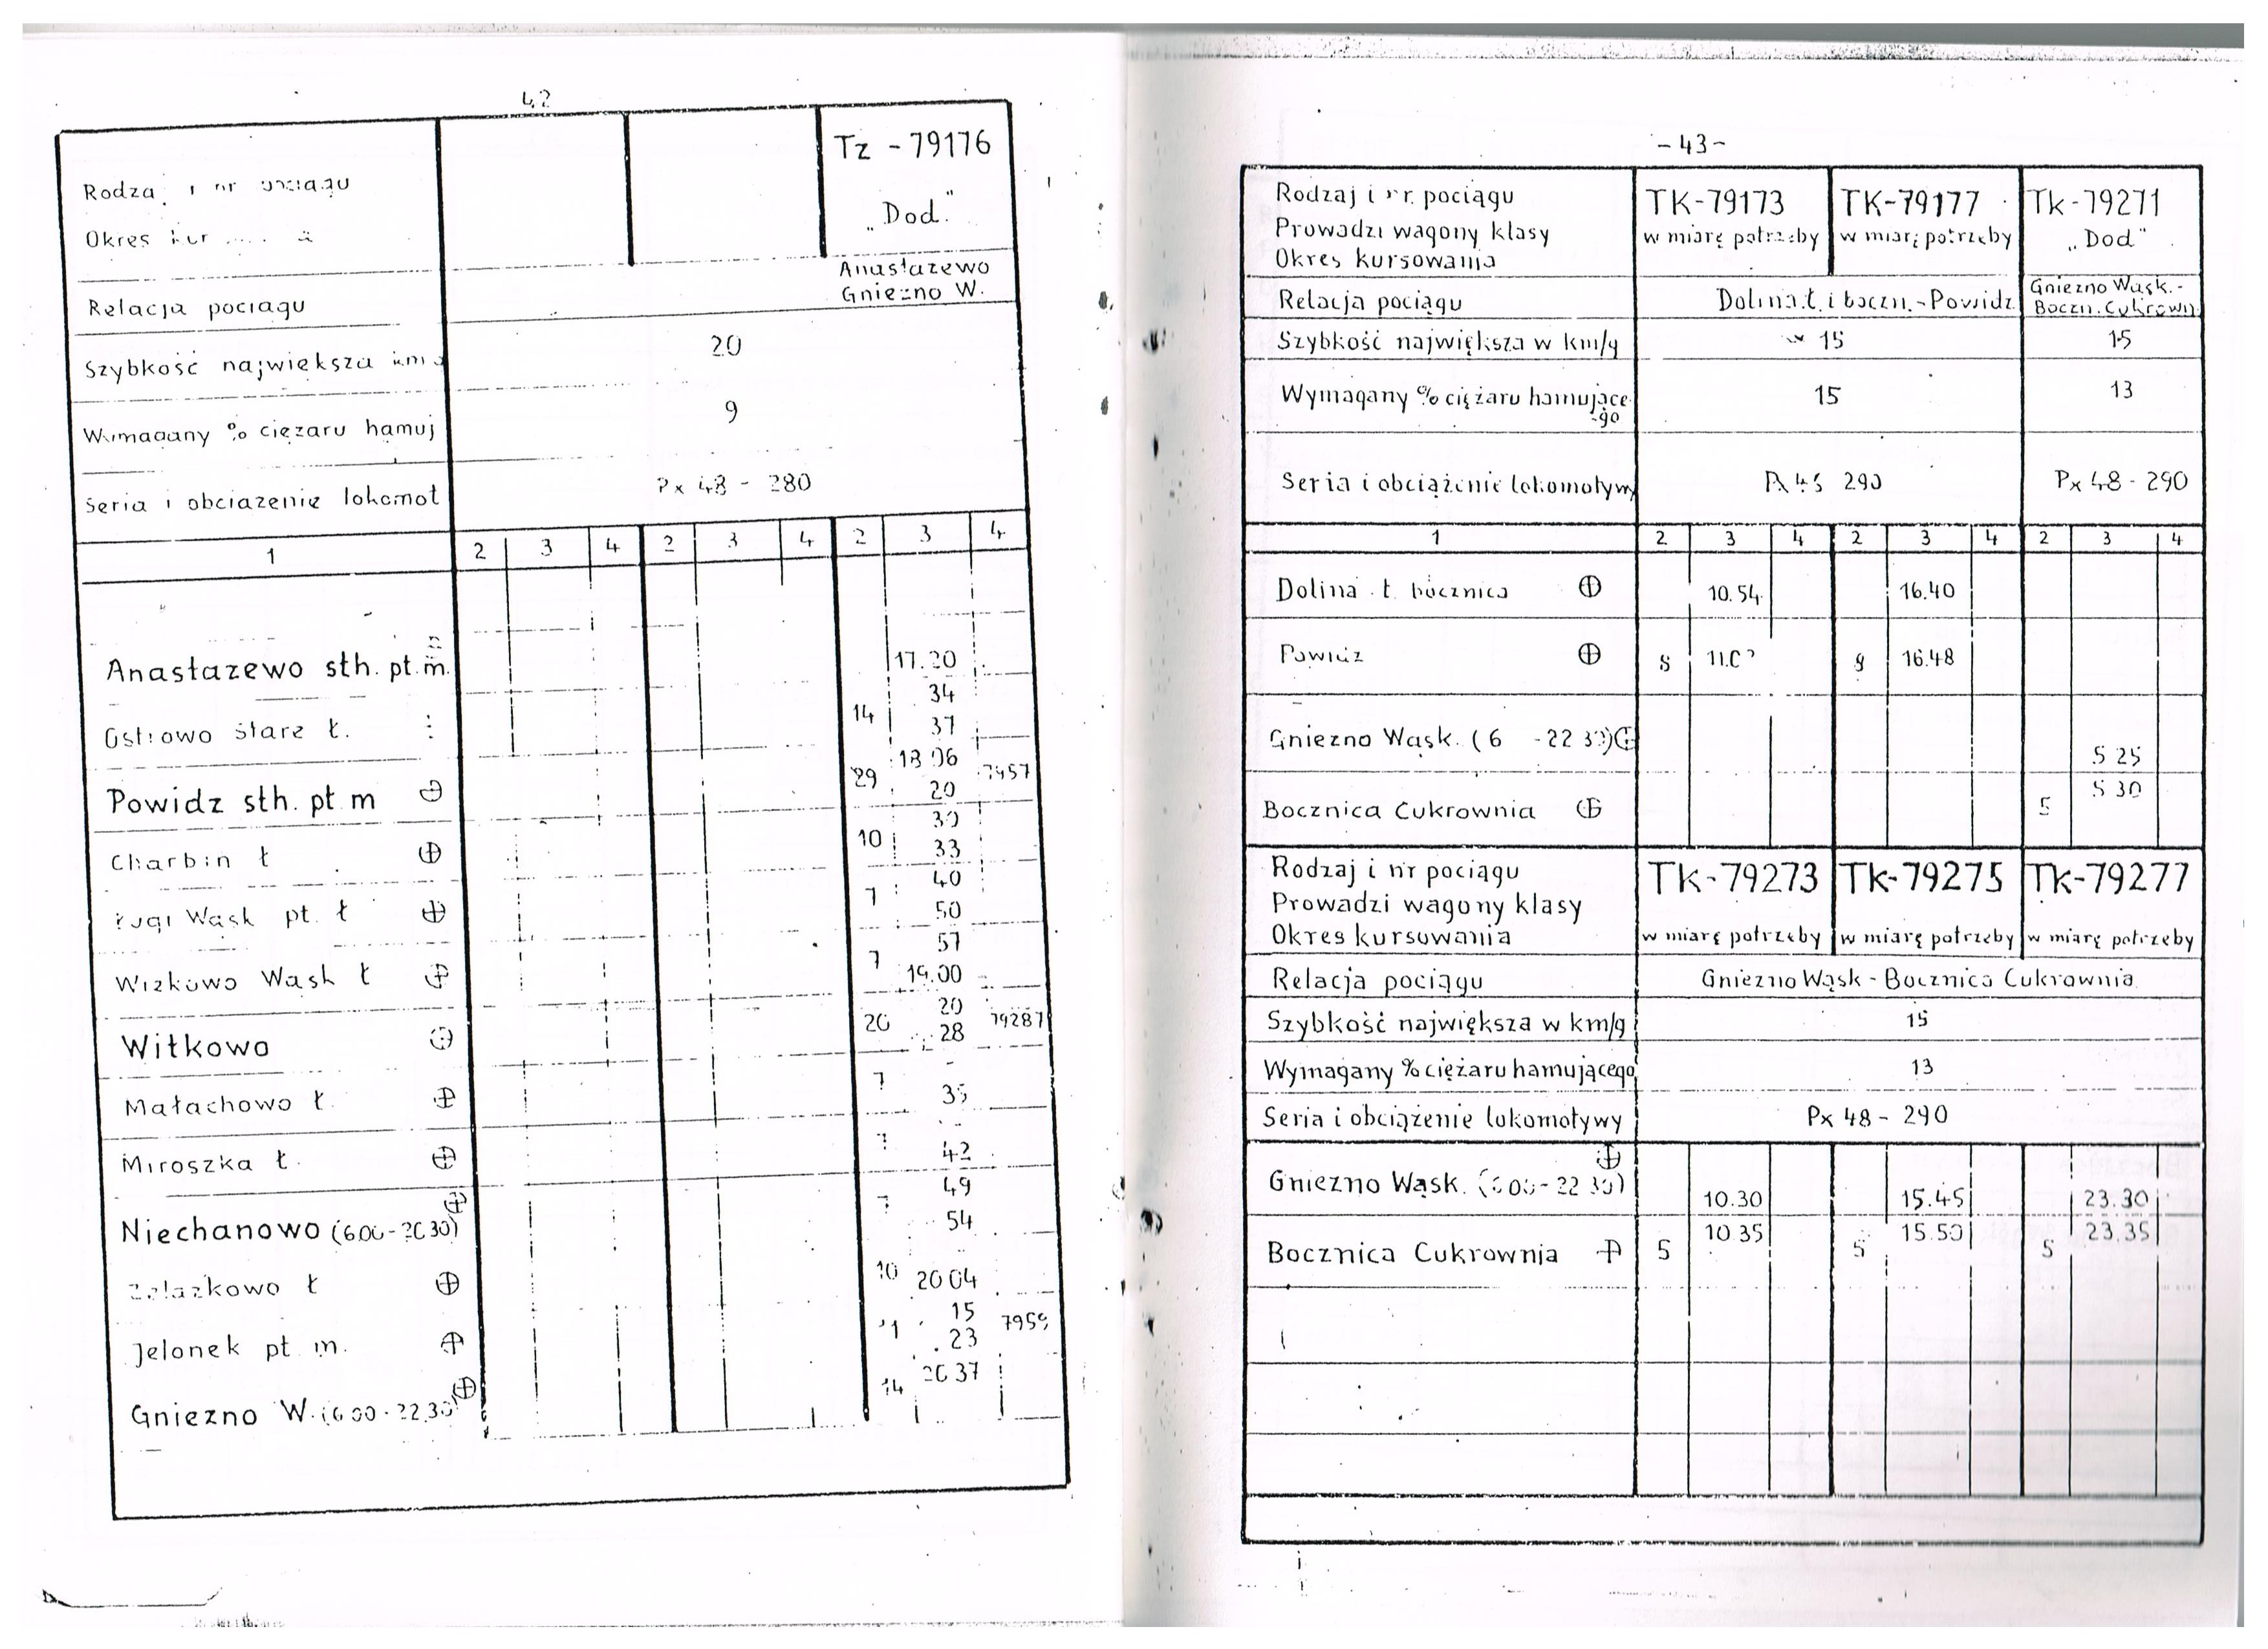 42
Tz - 79176
„Dod."
Okres
Anastazewo
Gniezno W.
Relacja pociągu
Szybkość największa
20
% ciężaru hamuj
9
Seria i obciążenie lokomot
Px 48 - 280
1 2 3 4 2 3 4 2 3 4
Anastazewo sth. pt. m. 17.20
34
Ostrowo Stare Ł. 14
37
18 06
Powidz sth. pt m 29 7957
20
30
Charbin Ł 10
33
40
Wąsk pt. Ł 7
50
57
Wąsk Ł 7
19.00
20
Witkowo 20 79287
28
Małachowo Ł. 7 35
Miroszka Ł. 42
49
Niechanowo (6.00 - 20 30)
54
Ł 10 20 04
15
Jelonek pt m. 7959
23
20 37
Gniezno W. (6 00 - 22.30) 14
- 43 -
Rodzaj i nr. pociągu TK-79173 TK-79177 Tk-79271
Prowadzi wagony klasy w miarę potrzeby w miarę potrzeby „Dod"
Okres kursowania
Relacja pociągu Dolina Ł. i boczn. - Powidz Gniezno Wąsk. -
Boczn. Cukrown.
Szybkość największa w km/g 15 15
Wymagany % ciężaru hamujące 15 13
-go
Seria i obciążenie lokomotywy 290 Px 48 - 290
1 2 3 4 2 3 4 2 3 4
Dolina Ł. bocznica 10.54 16.40
Powidz 8 8 16.48
Gniezno Wąsk. (6 - 22 30)
5 25
5 30
Bocznica Cukrownia 5
Rodzaj i nr pociągu TK-79273 TK-79275 TK-79277
Prowadzi wagony klasy
Okres kursowania w miarę potrzeby w miarę potrzeby w miarę potrzeby
Relacja pociągu Gniezno Wąsk - Bocznica Cukrownia
Szybkość największa w km/g 15
Wymagany % ciężaru hamującego 13
Seria i obciążenie lokomotywy Px 48 - 290
Gniezno Wąsk. (6 00 - 22 30)
10.30 15.45 23.30
10 35 15.50 23.35
Bocznica Cukrownia 5 5 5